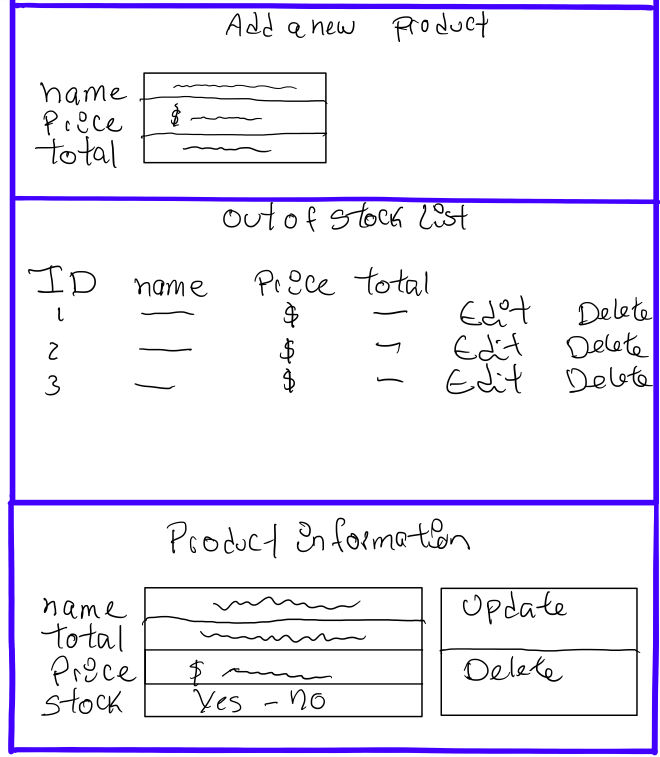 Add a new product
name
Price $
total
out of stock list
ID name Price total
1 $ Edit Delete
2 $ Edit Delete
3 $ Edit Delete
Product information
name
total
Price $
stock Yes - no
Update
Delete